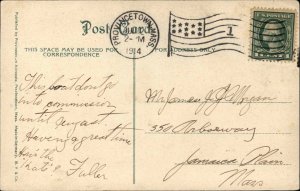 Post Card
THIS SPACE MAY BE USED FOR
CORRESPONDENCE
FOR ADDRESS ONLY
PROVINCETOWN, MASS.
2-PM
1914
1
This boat don't go
into commission
until August
Having a great time
Fuller
Mr James J. J. Morgan
350 Arborway
Jamaica Plain
Mass